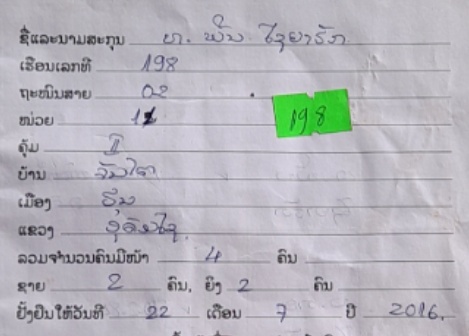 ຊື່ແລະນາມສະກຸນ ທ. ພັນ ໄຊຍາຣັກ
ເຮືອນເລກທີ 198
ຖະໜົນສາຍ 02
ໜ່ວຍ 11
198
ຄຸ້ມ II
ບ້ານ
ເມືອງ ຮຸນ
ແຂວງ ອຸດົມໄຊ
ລວມຈຳນວນຄົນມີໜ້າ 4 ຄົນ
ຊາຍ 2 ຄົນ, ຍິງ 2 ຄົນ
ຢັ້ງຢືນໃຫ້ວັນທີ 22 ເດືອນ 7 ປີ 2016.